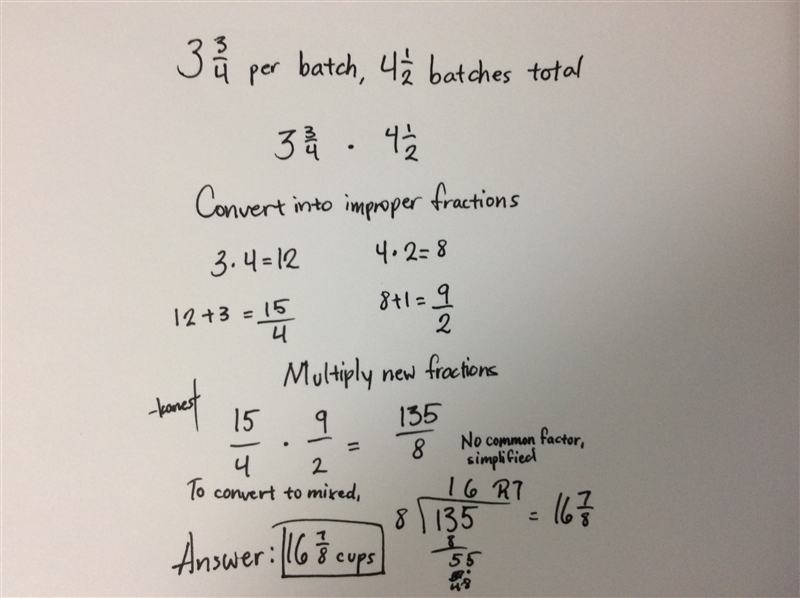 3 3/4 per batch, 4 1/2 batches total
3 3/4 · 4 1/2
Convert into improper fractions
3·4=12
4·2=8
12+3 = 15/4
8+1= 9/2
Multiply new fractions
15/4 · 9/2 = 135/8
No common factor,
simplified
To convert to mixed,
16 R7
8 135 = 16 7/8
8
55
48
Answer: 16 7/8 cups